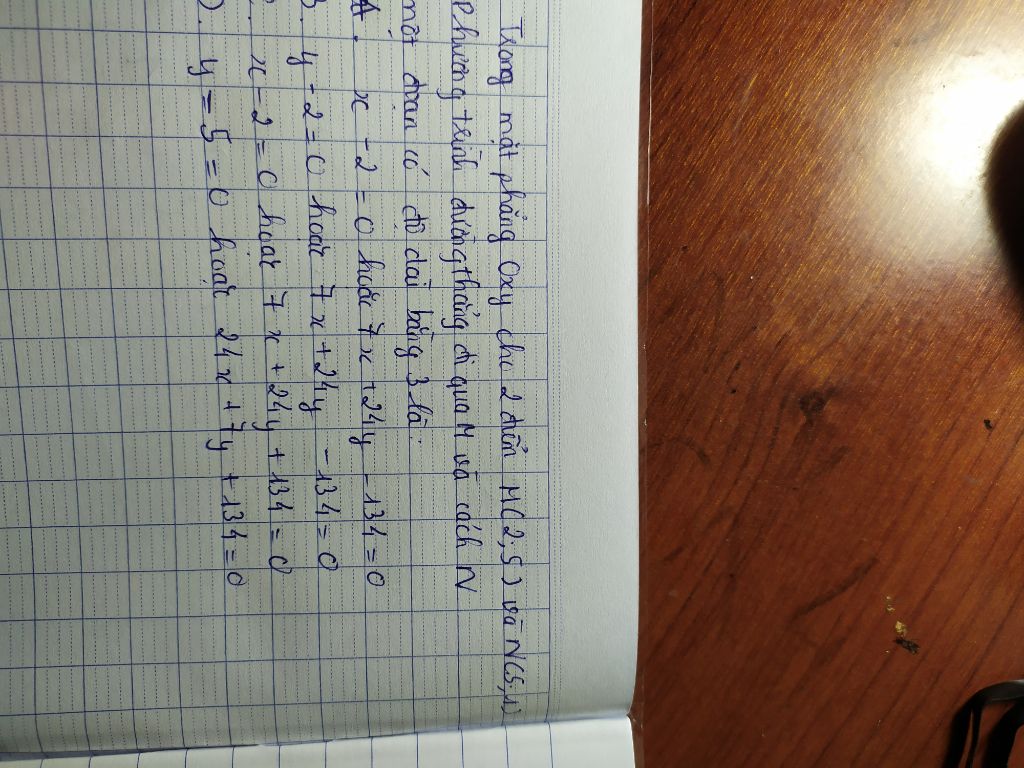 Trong mặt phẳng Oxy cho 2 điểm M(2,5) và N(5,1)
Phương trình đường thẳng đi qua M và cách N
một đoạn có độ dài bằng 3 là:
A. x - 2 = 0 hoặc 7x + 24y - 134 = 0
B. y - 2 = 0 hoặc 7x + 24y - 134 = 0
C. x - 2 = 0 hoặc 7x + 24y + 134 = 0
D. y = 5 = 0 hoặc 24x + 7y + 134 = 0